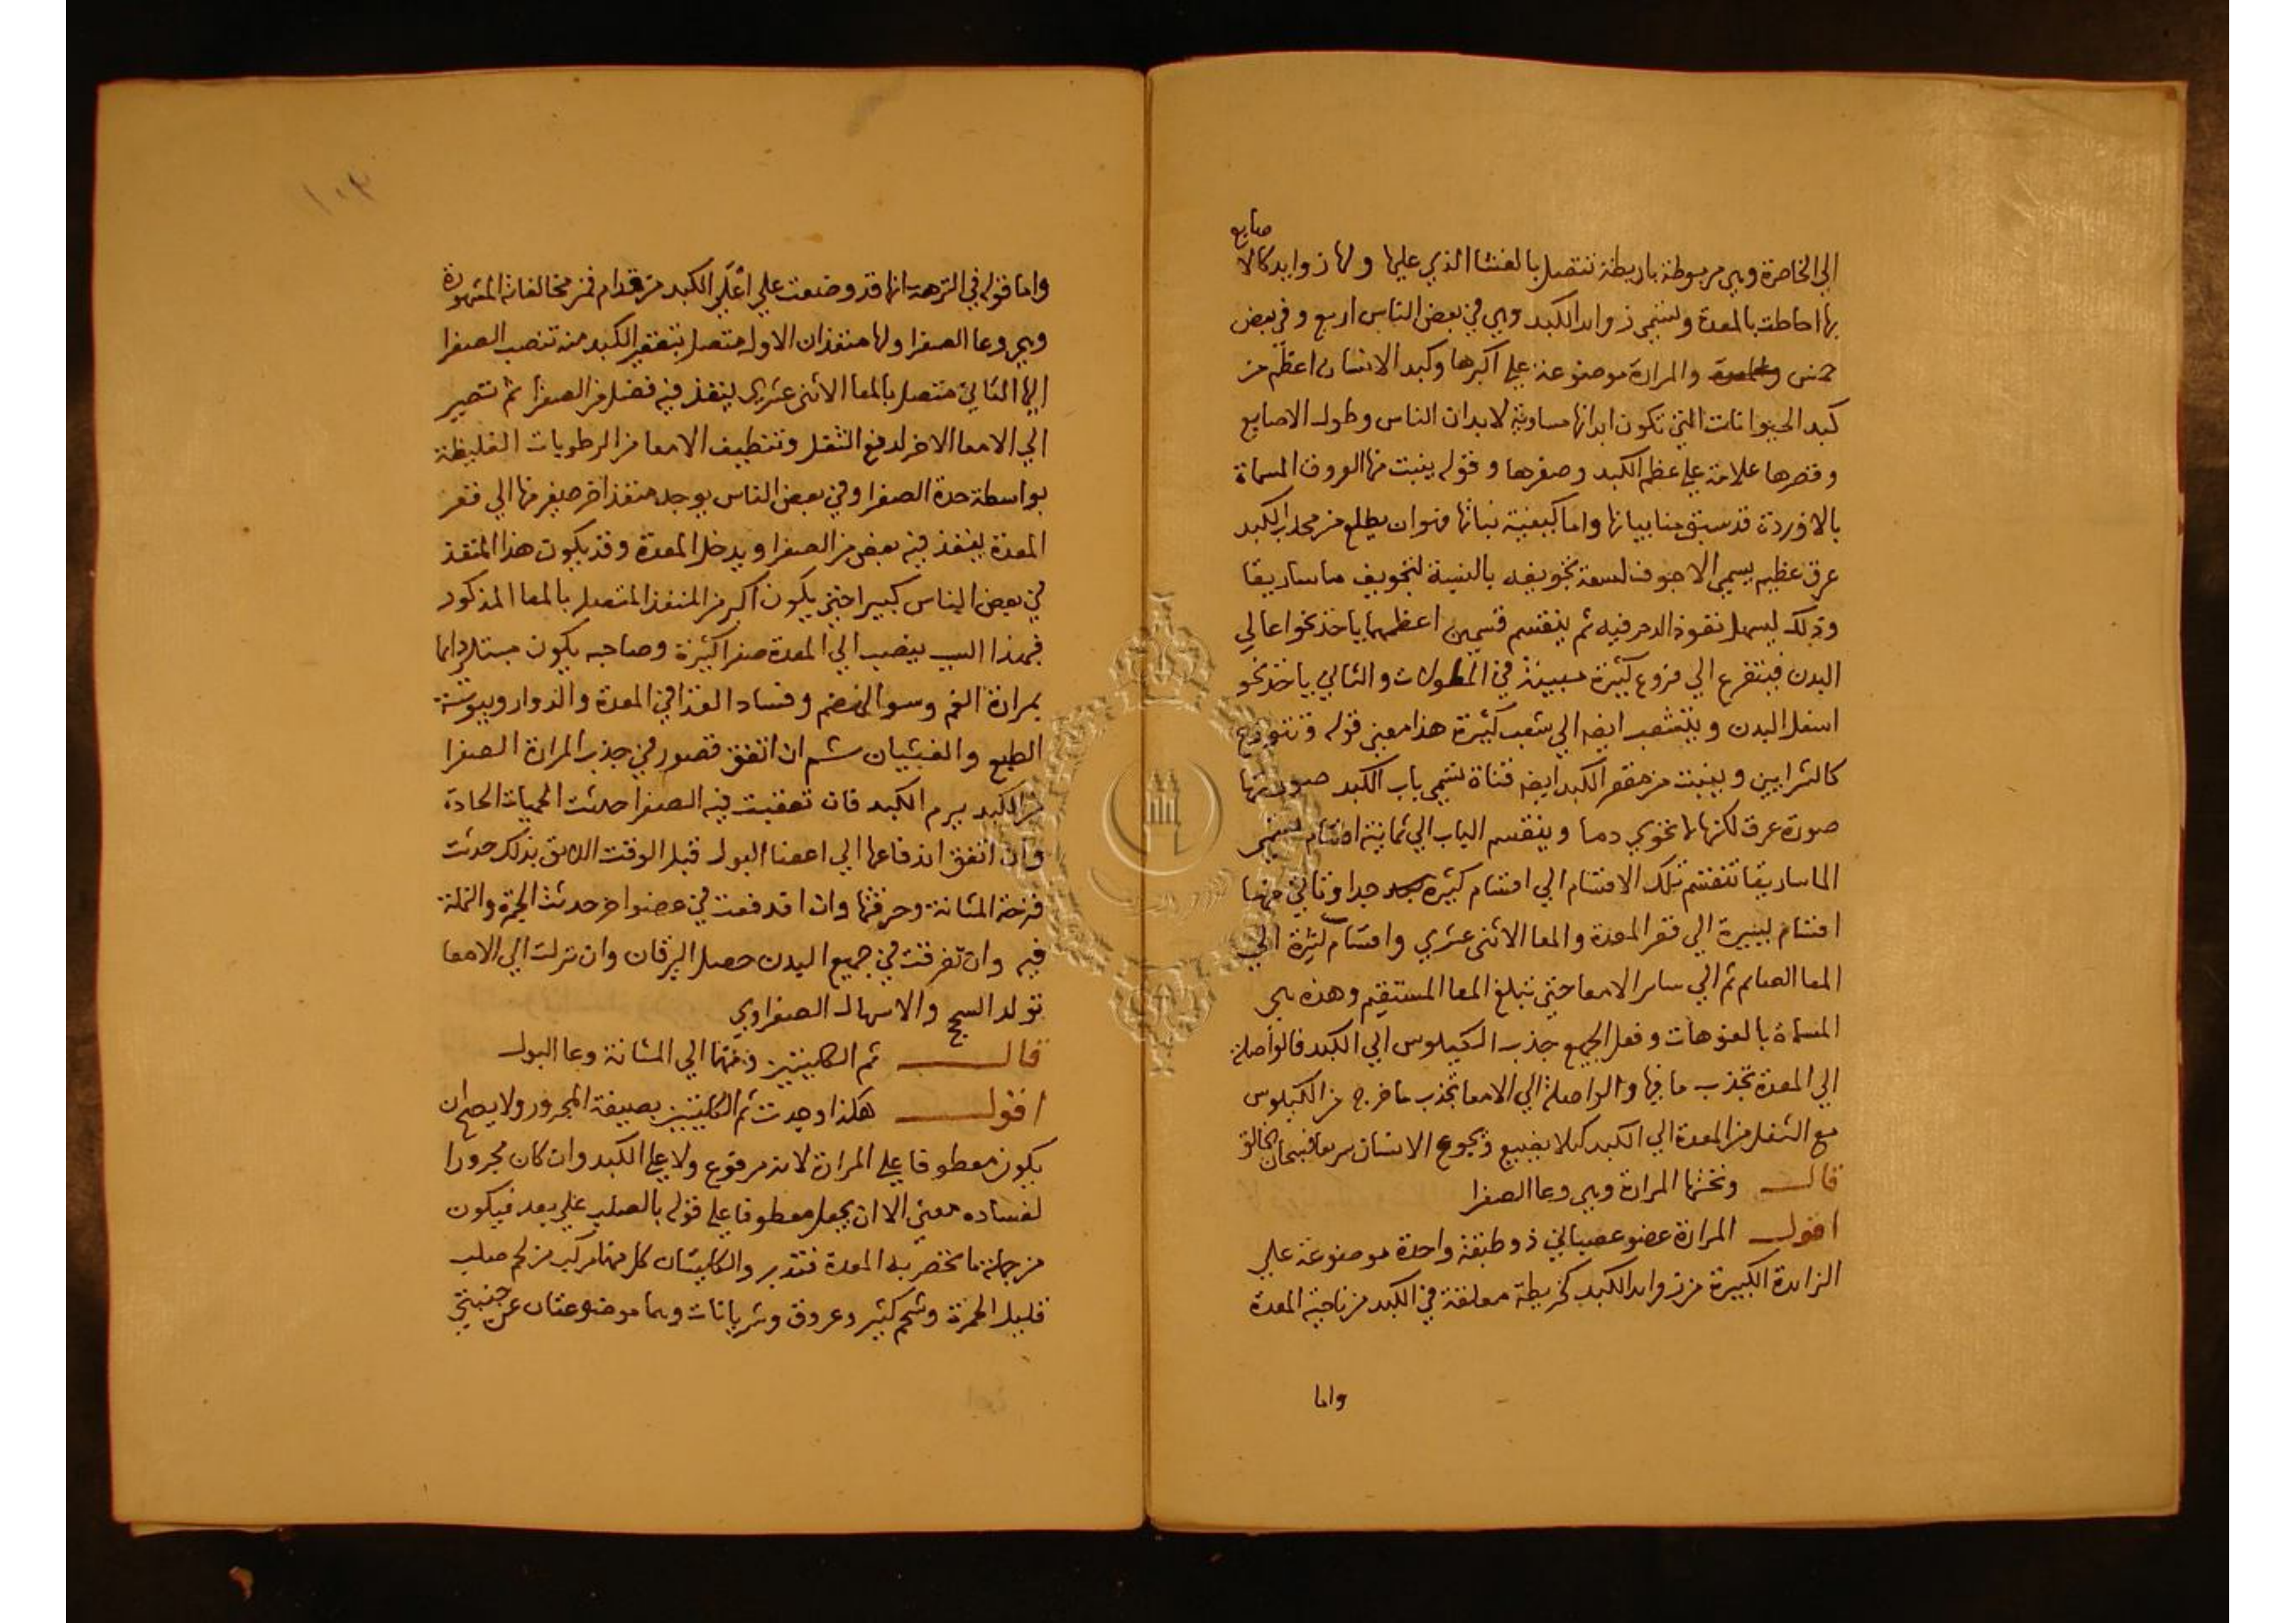 صابع
الي الخاصرة وهي مربوطة باربطة تتصل بالغشا الذي عليها ولها زوايد كالا
بها احاطت بالمعدة وتسمي زوايد الكبد وهي في بعض الناس اربع وفي بعض
خمس والمرارة موضوعة علي اكبرها وكبد الانسان اعظم من
كبد الحيوانات التي تكون ابدانها مساوية لابدان الناس وطول الاصابع
وقصرها علامة علي عظم الكبد وصغرها وقوله ينبت منها العروق المسماة
بالاوردة قد سبق منا بيانها واما كيفية نباتها فهو ان يطلع من محدب الكبد
عرق عظيم يسمي الاجوف لسعة تجويفه بالنسبة لتجويف ماساريقا
وذلك ليسهل نفوذ الدم فيه ثم ينقسم قسمين اعظمهما ياخذ نحو اعالي
البدن فيتفرع الي فروع كثيرة مبينة في المطولات والثاني ياخذ نحو
اسفل البدن ويتشعب ايضا الي شعب كثيرة هذا معني قوله وتتوزع
كالشرايين وينبت من مقعر الكبد ايضا قناة تسمي باب الكبد صورتها
صورة عرق لكنها لا تحوي دما وينقسم الباب الي ثمانية اقسام تسمي
الماساريقا تنقسم تلك الاقسام الي اقسام كثيرة جدا وتاتي منها
اقسام يسيرة الي قعر المعدة والمعا الاثني عشري واقسام كثيرة الي
المعا الصايم ثم الي ساير الامعا حتي تبلغ المعا المستقيم وهذه هي
المسماة بالفوهات وفعل الجميع جذب الكيلوس الي الكبد فالواصلة
الي المعدة تجذب ما فيها والواصلة الي الامعا تجذب ما خرج من الكيلوس
مع الثفل من المعدة الي الكبد كيلا يضيع ويجوع الانسان سريعا فسبحان الخالق
قال وتحتها المرارة وهي وعا الصفرا
اقول المرارة عضو عصباني ذو طبقة واحدة موضوعة علي
الزايدة الكبيرة من زوايد الكبد كخريطة معلقة في الكبد من ناحية المعدة
واما
١٠٣
واما قوله في النزهة انها قد وضعت علي اعلي الكبد من قدام فمن مخالفاته المشهورة
وهي وعا الصفرا ولها منفذان الاول متصل بتقعير الكبد منه تنصب الصفرا
اليها الثاني متصل بالمعا الاثني عشري ينفذ فيه فضل من الصفرا ثم تصير
الي الامعا الاخر لدفع الثفل وتنظيف الامعا من الرطوبات الغليظة
بواسطة حدة الصفرا وفي بعض الناس يوجد منفذ اخر صغير منها الي قعر
المعدة ينفذ فيه بعض من الصفرا ويدخل المعدة وقد يكون هذا المنفذ
في بعض الناس كبيرا حتي يكون اكبر من المنفذ المتصل بالمعا المذكور
فبهذا السبب ينصب الي المعدة صفرا كثيرة وصاحبه يكون مبتلا دايما
بمرارة الفم وسو الهضم وفساد الغذا في المعدة والدوار ويبوسة
الطبع والغثيان ثم ان اتفق قصور في جذب المرارة الصفرا
من الكبد يرم الكبد فان تعفنت فيه الصفرا حدثت الحميات الحادة
وان اتفق اندفاعها الي اعضا البول قبل الوقت اللايق بذلك حدثت
قرحة المثانة وحرقتها وان اندفعت في عضو اخر حدثت الحمرة والنملة
فيه وان تفرقت في جميع البدن حصل اليرقان وان نزلت الي الامعا
تولد السحج والاسهال الصفراوي
قال ثم الكليتين ومنهما الي المثانة وعا البول
اقول هكذا وجدت ثم الكليتين بصيغة المجرور ولا يصح ان
يكون معطوفا علي المرارة لانه مرفوع ولا علي الكبد وان كان مجرورا
لفساده معني الا ان يجعل معطوفا علي قوله بالصلب علي بعد فيكون
من جملة ما تختص به المعدة فتدبر والكليتان كل منهما مركب من لحم صلب
قليل الحمرة وشحم كثير وعروق وشريانات وهما موضوعتان عن جنبتي